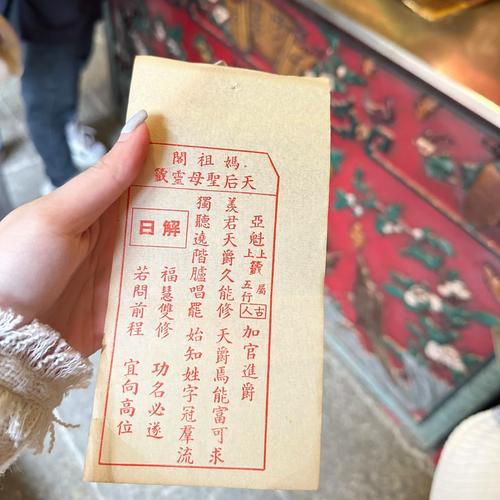 媽祖閣
天后聖母靈籤
亞魁 上上籤 五行屬 古人 加官進爵
羨君天爵久能修 天爵焉能富可求
獨聽遶階臚唱罷 始知姓字冠羣流
解日
福慧雙修 功名必遂
若問前程 宜向高位